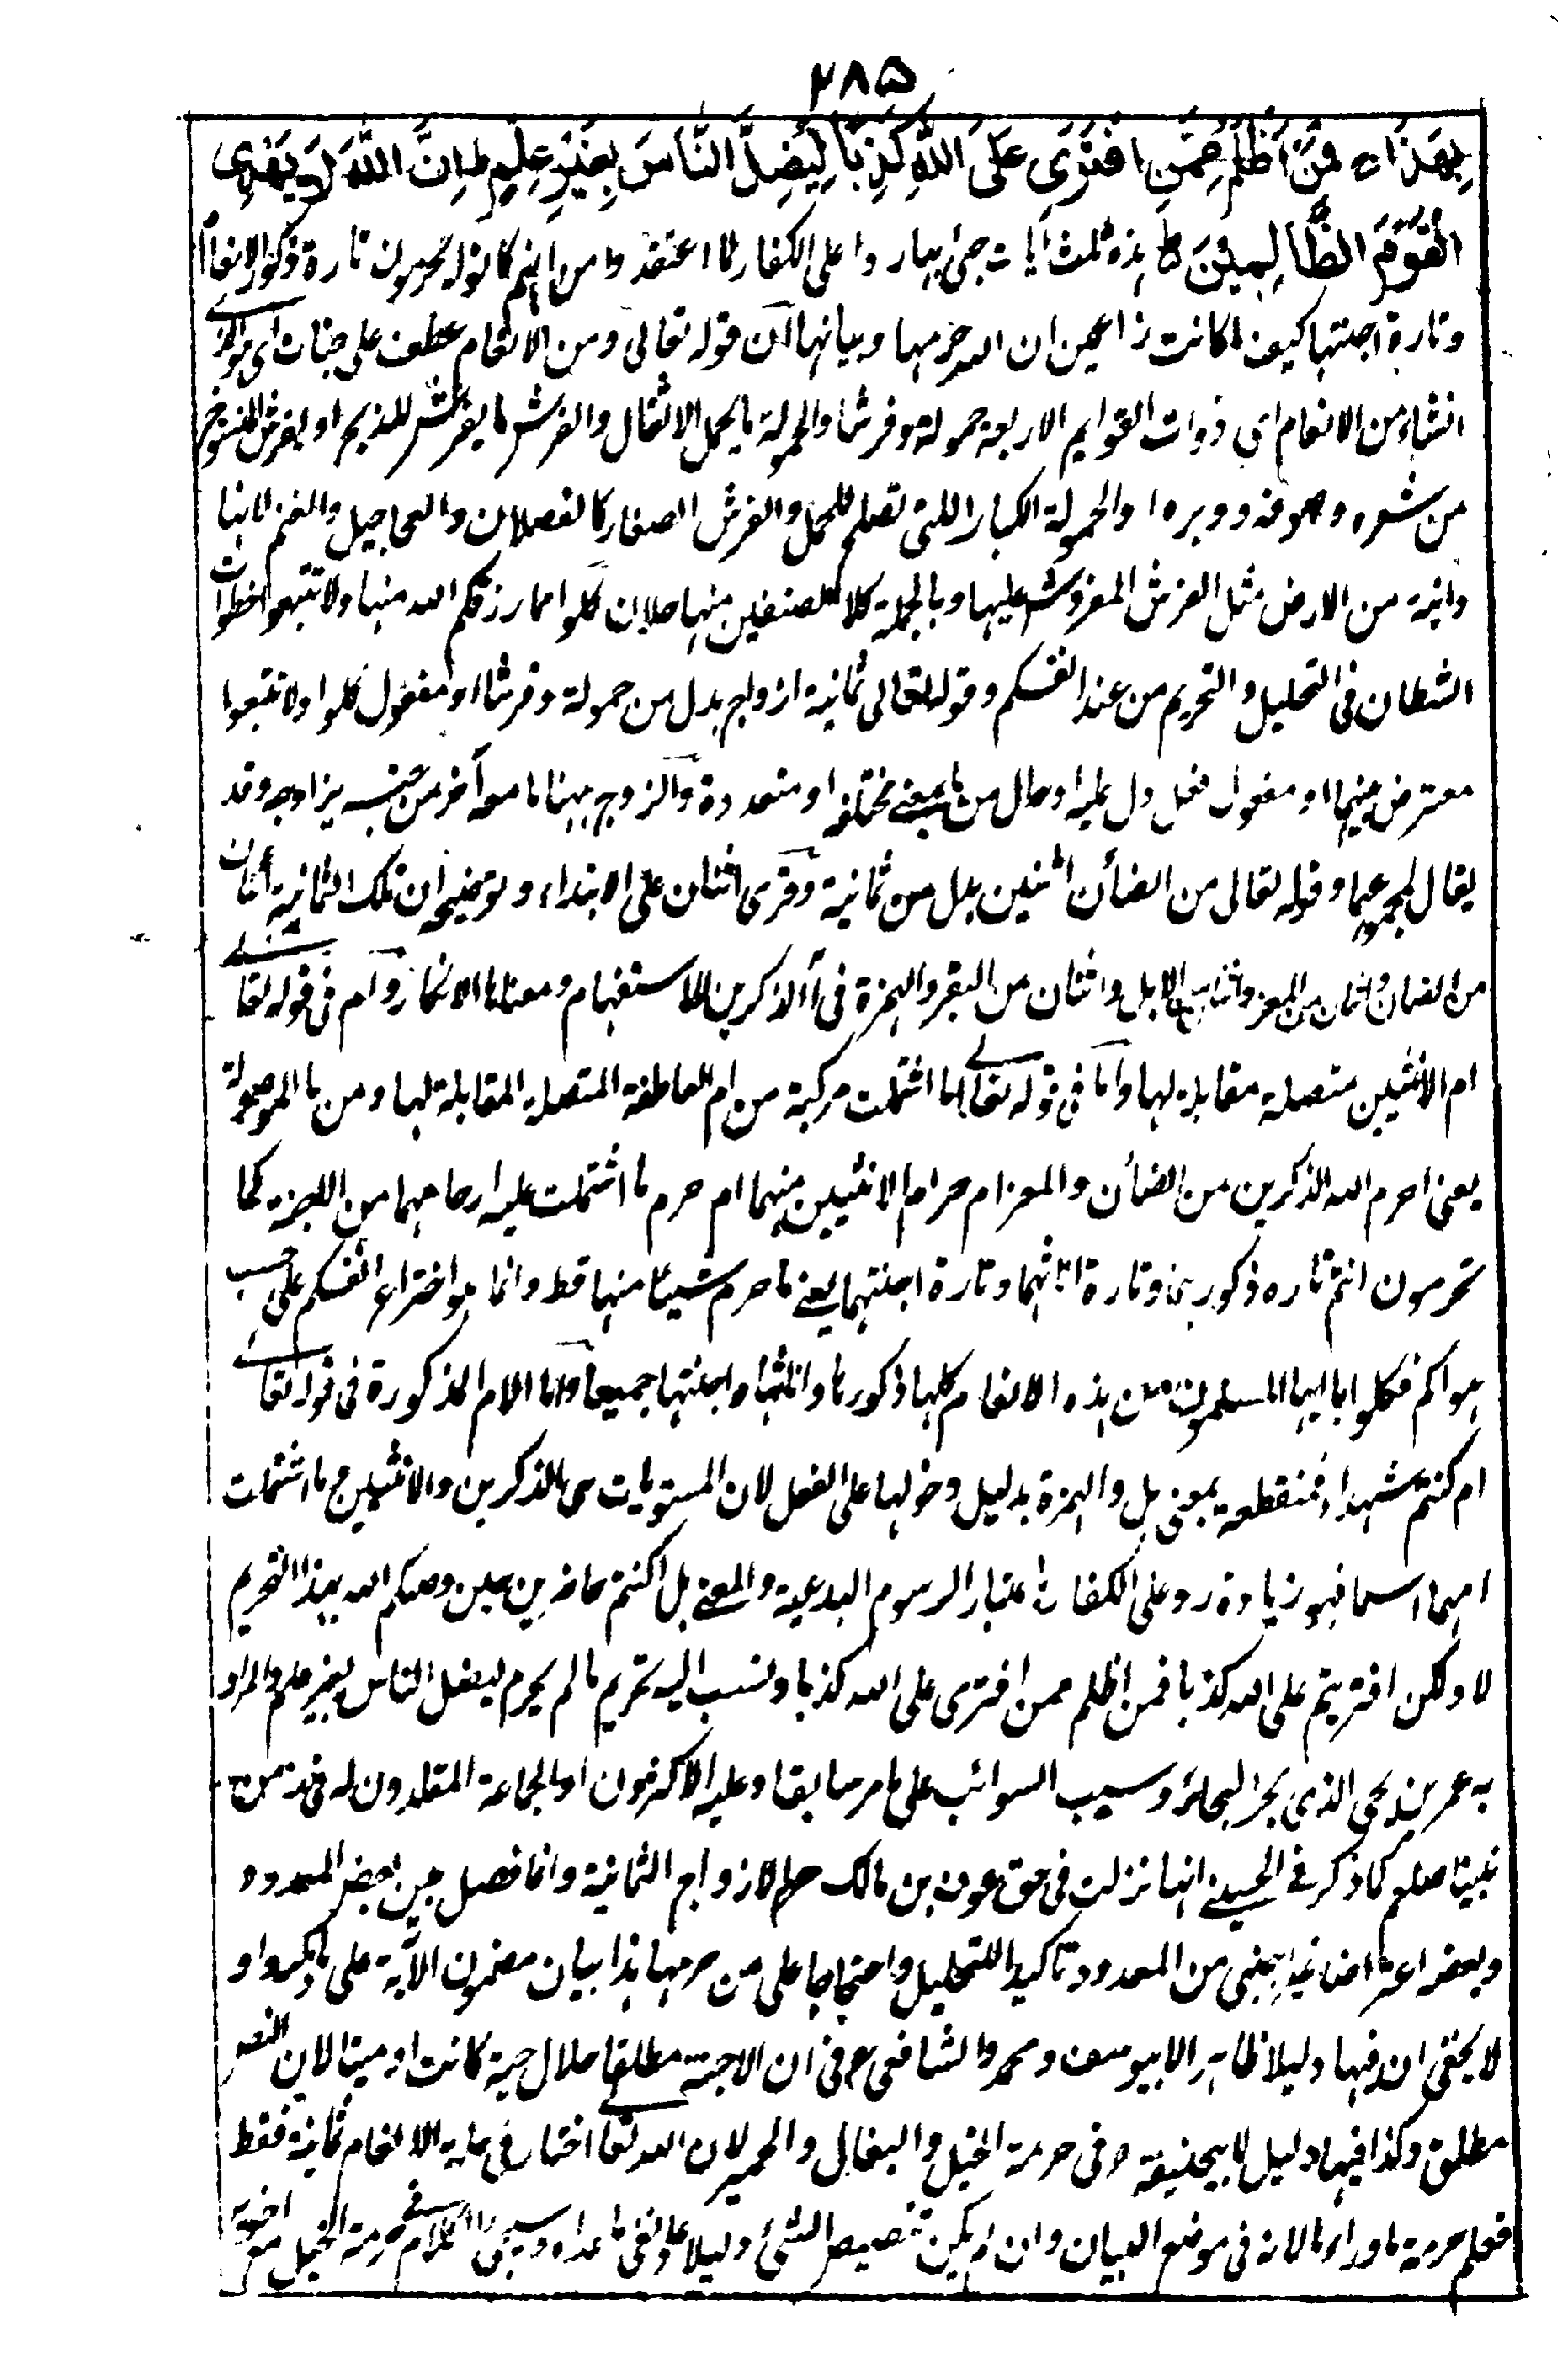 ٢٨٥
بِهٰذَا ۚ فَمَنْ أَظْلَمُ مِمَّنِ افْتَرَىٰ عَلَى اللّٰهِ كَذِبًا لِيُضِلَّ النَّاسَ بِغَيْرِ عِلْمٍ ط اِنَّ اللّٰهَ لَا يَهْدِى
الْقَوْمَ الظَّالِمِيْنَ ط هذه ثلث آيات جئ بها ردا على الكفار لما اعتقدوا من انهم كانوا يحرمون تارة ذكور الانعام
وتارة اجنتها كيف ما كانت زاعمين ان الله حرمها وبيانها ان قوله تعالى ومن الانعام عطف على جنات اى هو الذى
انشاء من الانعام اى ذوات القوايم الاربعة حمولة وفرشا والحمولة ما يحمل الاثقال والفرش ما يفرش للذبح او يفرش المنسوج
من شعره وصوفه ووبره او الحمولة الكبار اللتى تصلح للحمل والفرش الصغار كالفصلان والعجاجيل والغنم لانها
دانية من الارض مثل الفرش المفروش عليها وبالجملة كلا الصنفين منها حلان كلوا مما رزقكم الله منها ولا تتبعوا خطوات
الشطان فى التحليل والتحريم من عند انفسكم وقوله تعالى ثمانية ازواج بدل من حمولة وفرشا او مفعول كلوا ولا تتبعوا
معترض بينهما او مفعول فعل دل عليه او حال من ما بمعنى مختلفة او متعددة والزوج ههنا ما معه آخر من جنسه يزاوجه وقد
يقال لمجموعهما وقوله تعالى من الضأن اثنين بدل من ثمانية وقرى اثنان على الابتداء وتوضيحه ان تلك الثمانية اثنان
من الضان واثنان من المعز واثنان من الابل واثنان من البقر والهمزة فى آلذكرين للاستفهام ومعناها الانكار وام فى قوله تعالى
ام الانثيين متصلة مقابلة لها واما فى قوله تعالى اما اشتملت مركبة من ام العاطفة المتصلة المقابلة لها ومن ما الموصولة
يعنى احرم الله الذكرين من الضأن والمعز ام حرام الانثيين منهما ام حرم ما اشتملت عليه ارحامهما من الاجنة كما
تحرمون انتم تاره ذكورها وتارة اناثهما وتارة اجنتهما يعنى ما حرم شيئا منها قط وانما هو اختراع انفسكم على حسب
هواكم فكلوا ايا ايها المسلمون من هذه الانعام كلها ذكورها واناثها واجنتها جميعا واما الام المذكورة فى قوله تعالى
ام كنتم شهداء فمنقطعة بمعنى بل والهمزة بدليل دخولها على الفعل لان المستويات هى الذكرين والانثيين ج ما اشتملت
اسما فهو زيادة رد على الكفار باعتبار الرسوم البدعية والمعنى بل اكنتم حاضرين حين وصاكم الله بهذا التحريم
لا ولكن افتريتم على الله كذبا فمن اظلم ممن افترى على الله كذبا ونسب اليه تحريم ما لم يحرم ليضل الناس بغير علم والمراد
به عمر بن لحى الذى بحر البحائر وسيب السوائب على ما مر سابقا وعليه الاكثرون او الجماعة المقلدون له فى زمن
نبينا صلعم كما ذكر فى الحسينى انها نزلت فى حق عوف بن مالك حلم لازواج الثمانية وانما فصل بين بعض المعدوده
وبعضه اعتراضا غير اجنبى من المعدود تاكيدا للتحليل واحتجاجا على من حرمها هذا بيان مضمون الآية على ما ذكروا و
لا يخفى ان فيها دليلا ظاهرا لابيوسف ومحمد والشافعى رح فى ان الاجنة مطلقا حلال حية كانت او ميتا لان النص
مطلق وكذا فيها دليل لابيحنيفة رح فى حرمة الخيل والبغال والحمير لان الله تعالى اختار فى هذه الانعام ثمانية فقط
فعلم حرمة ما وراءها لانه فى موضع البيان وان لم يكن تنصيص الشئ دليلا على نفى ما عداه وسيجئ الكلام فى حرمة الخيل مع اخوته